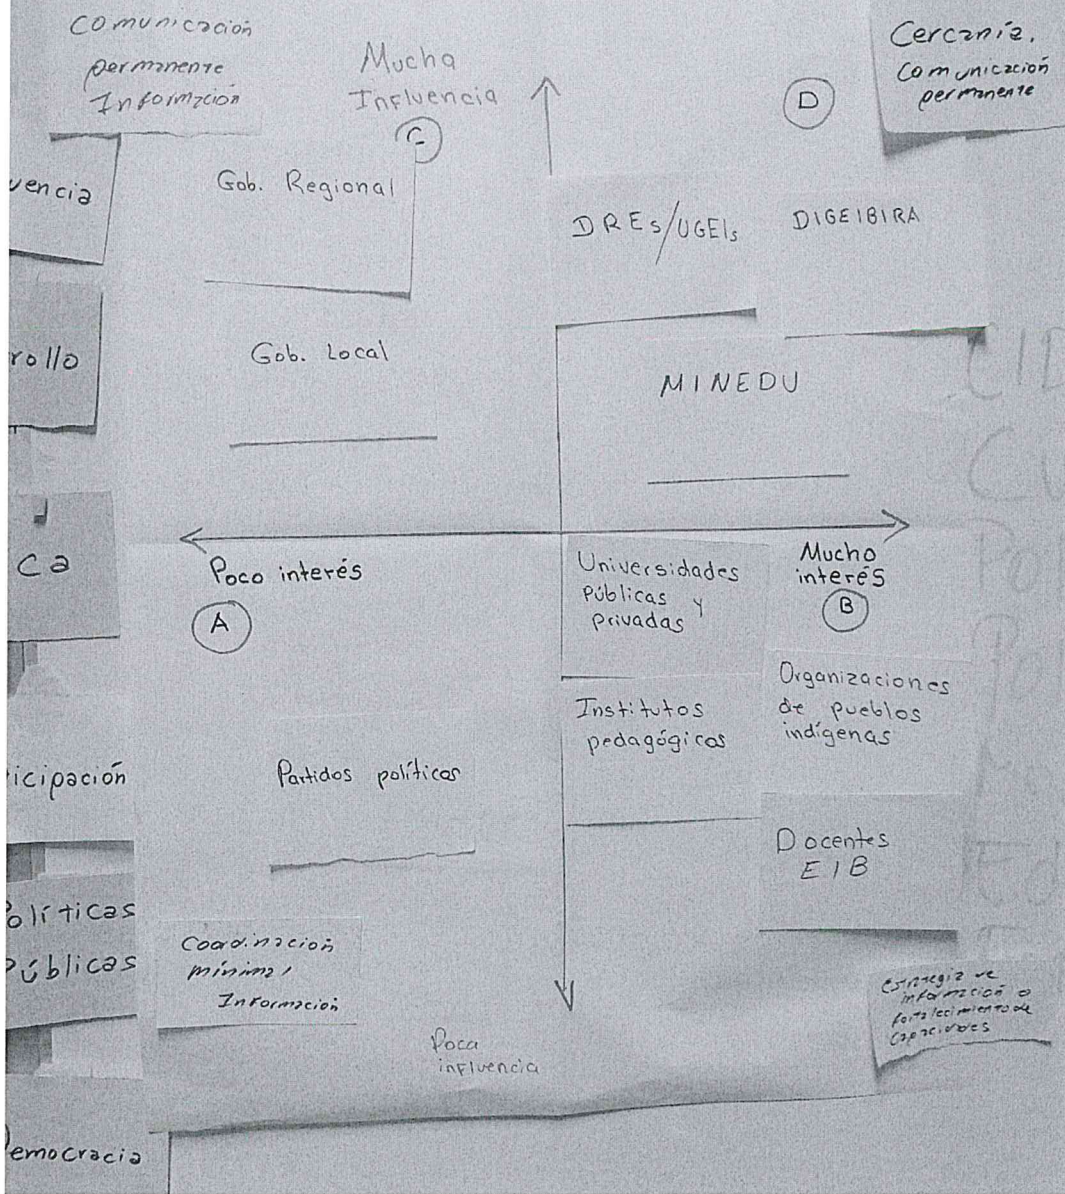 Comunicación
permanente
Información
Mucha
Influencia
C
D
Cercanía.
Comunicación
permanente
vencia
Gob. Regional
DREs/UGELs
DIGEIBIRA
rollo
Gob. Local
MINEDU
ca
Poco interés
A
Universidades
públicas y
privadas
Mucho
interés
B
Organizaciones
de pueblos
indígenas
Institutos
pedagógicos
icipación
Partidos políticos
Docentes
EIB
olíticas
Públicas
Coordinación
mínima,
Información
Estrategia de
información o
fortalecimiento de
capacidades
Poca
influencia
emocracia